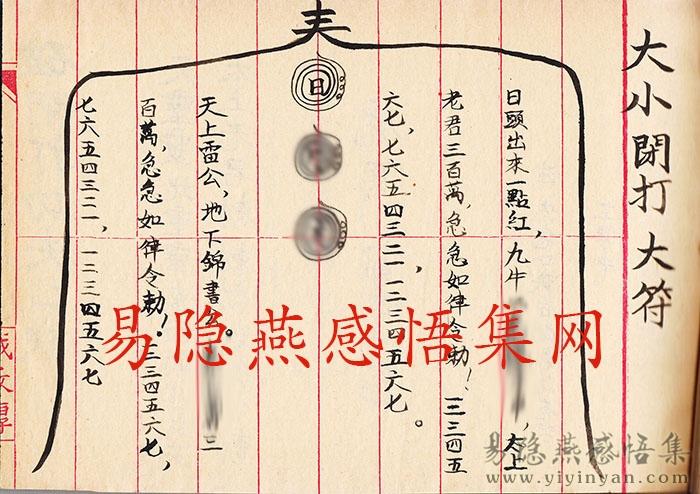 大小閉打大符
夫
日
日頭出來一點紅，九牛，太上
老君三百萬，急急如律令勅！、三三四五
六七，七六五四三二一，一二三四五六七。
天上雷公，地下錦書。二
百萬，急急如律令勅！。三三四五六七，
七六五四三二一，一二三四五六七
易隐燕感悟集网
易隐燕感悟集
www.yiyinyan.com